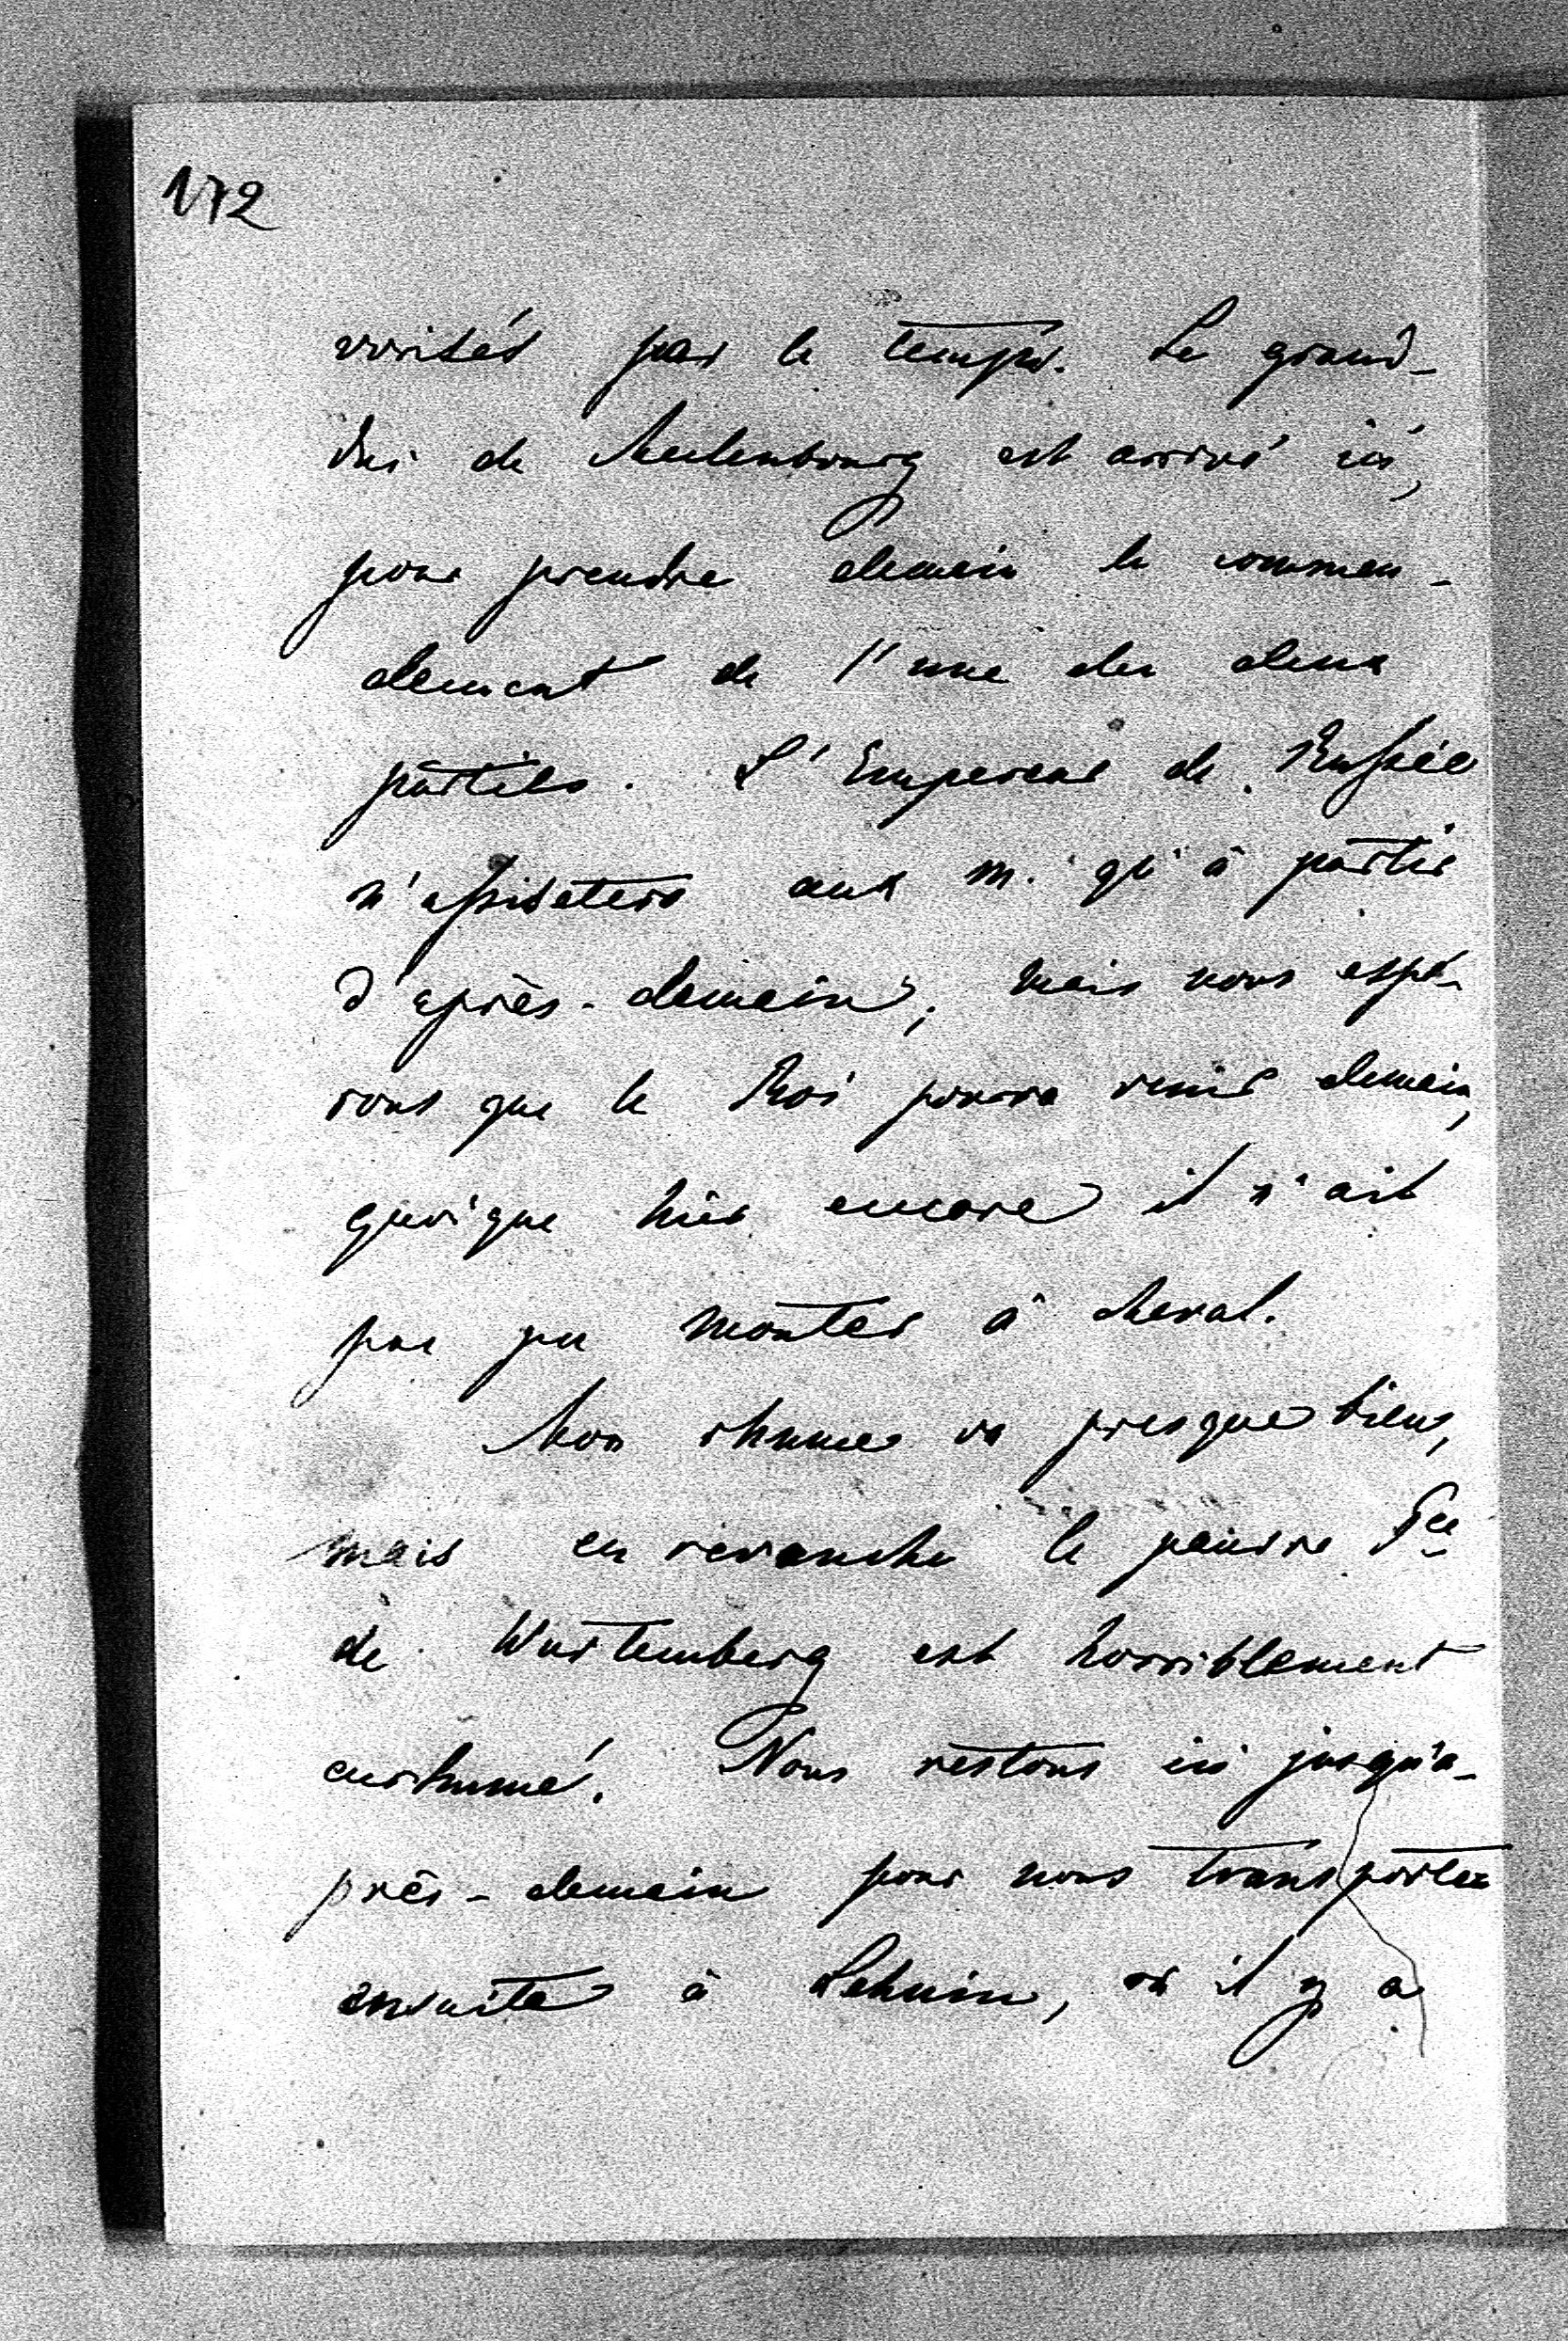 172
vorisés par le temps. Le grand-
duc de Mecklenbourg est arrivé ici,
pour prendre demain le comman-
dement de l'une des deux
parties. L'Empereur de Russie
n'assistera aux m. qu'à partir
d'après-demain; mais nous espé-
rons que le Roi pourra venir demain,
quoique hier encore il n'ait
pas pu monter à cheval.
Mon rhume va presque bien,
mais en revanche le pauvre Pce
de Wurtemberg est horriblement
enrhumé. Nous restons ici jusqu'a-
près-demain pour nous transporter
ensuite à Lehnin, où il y a